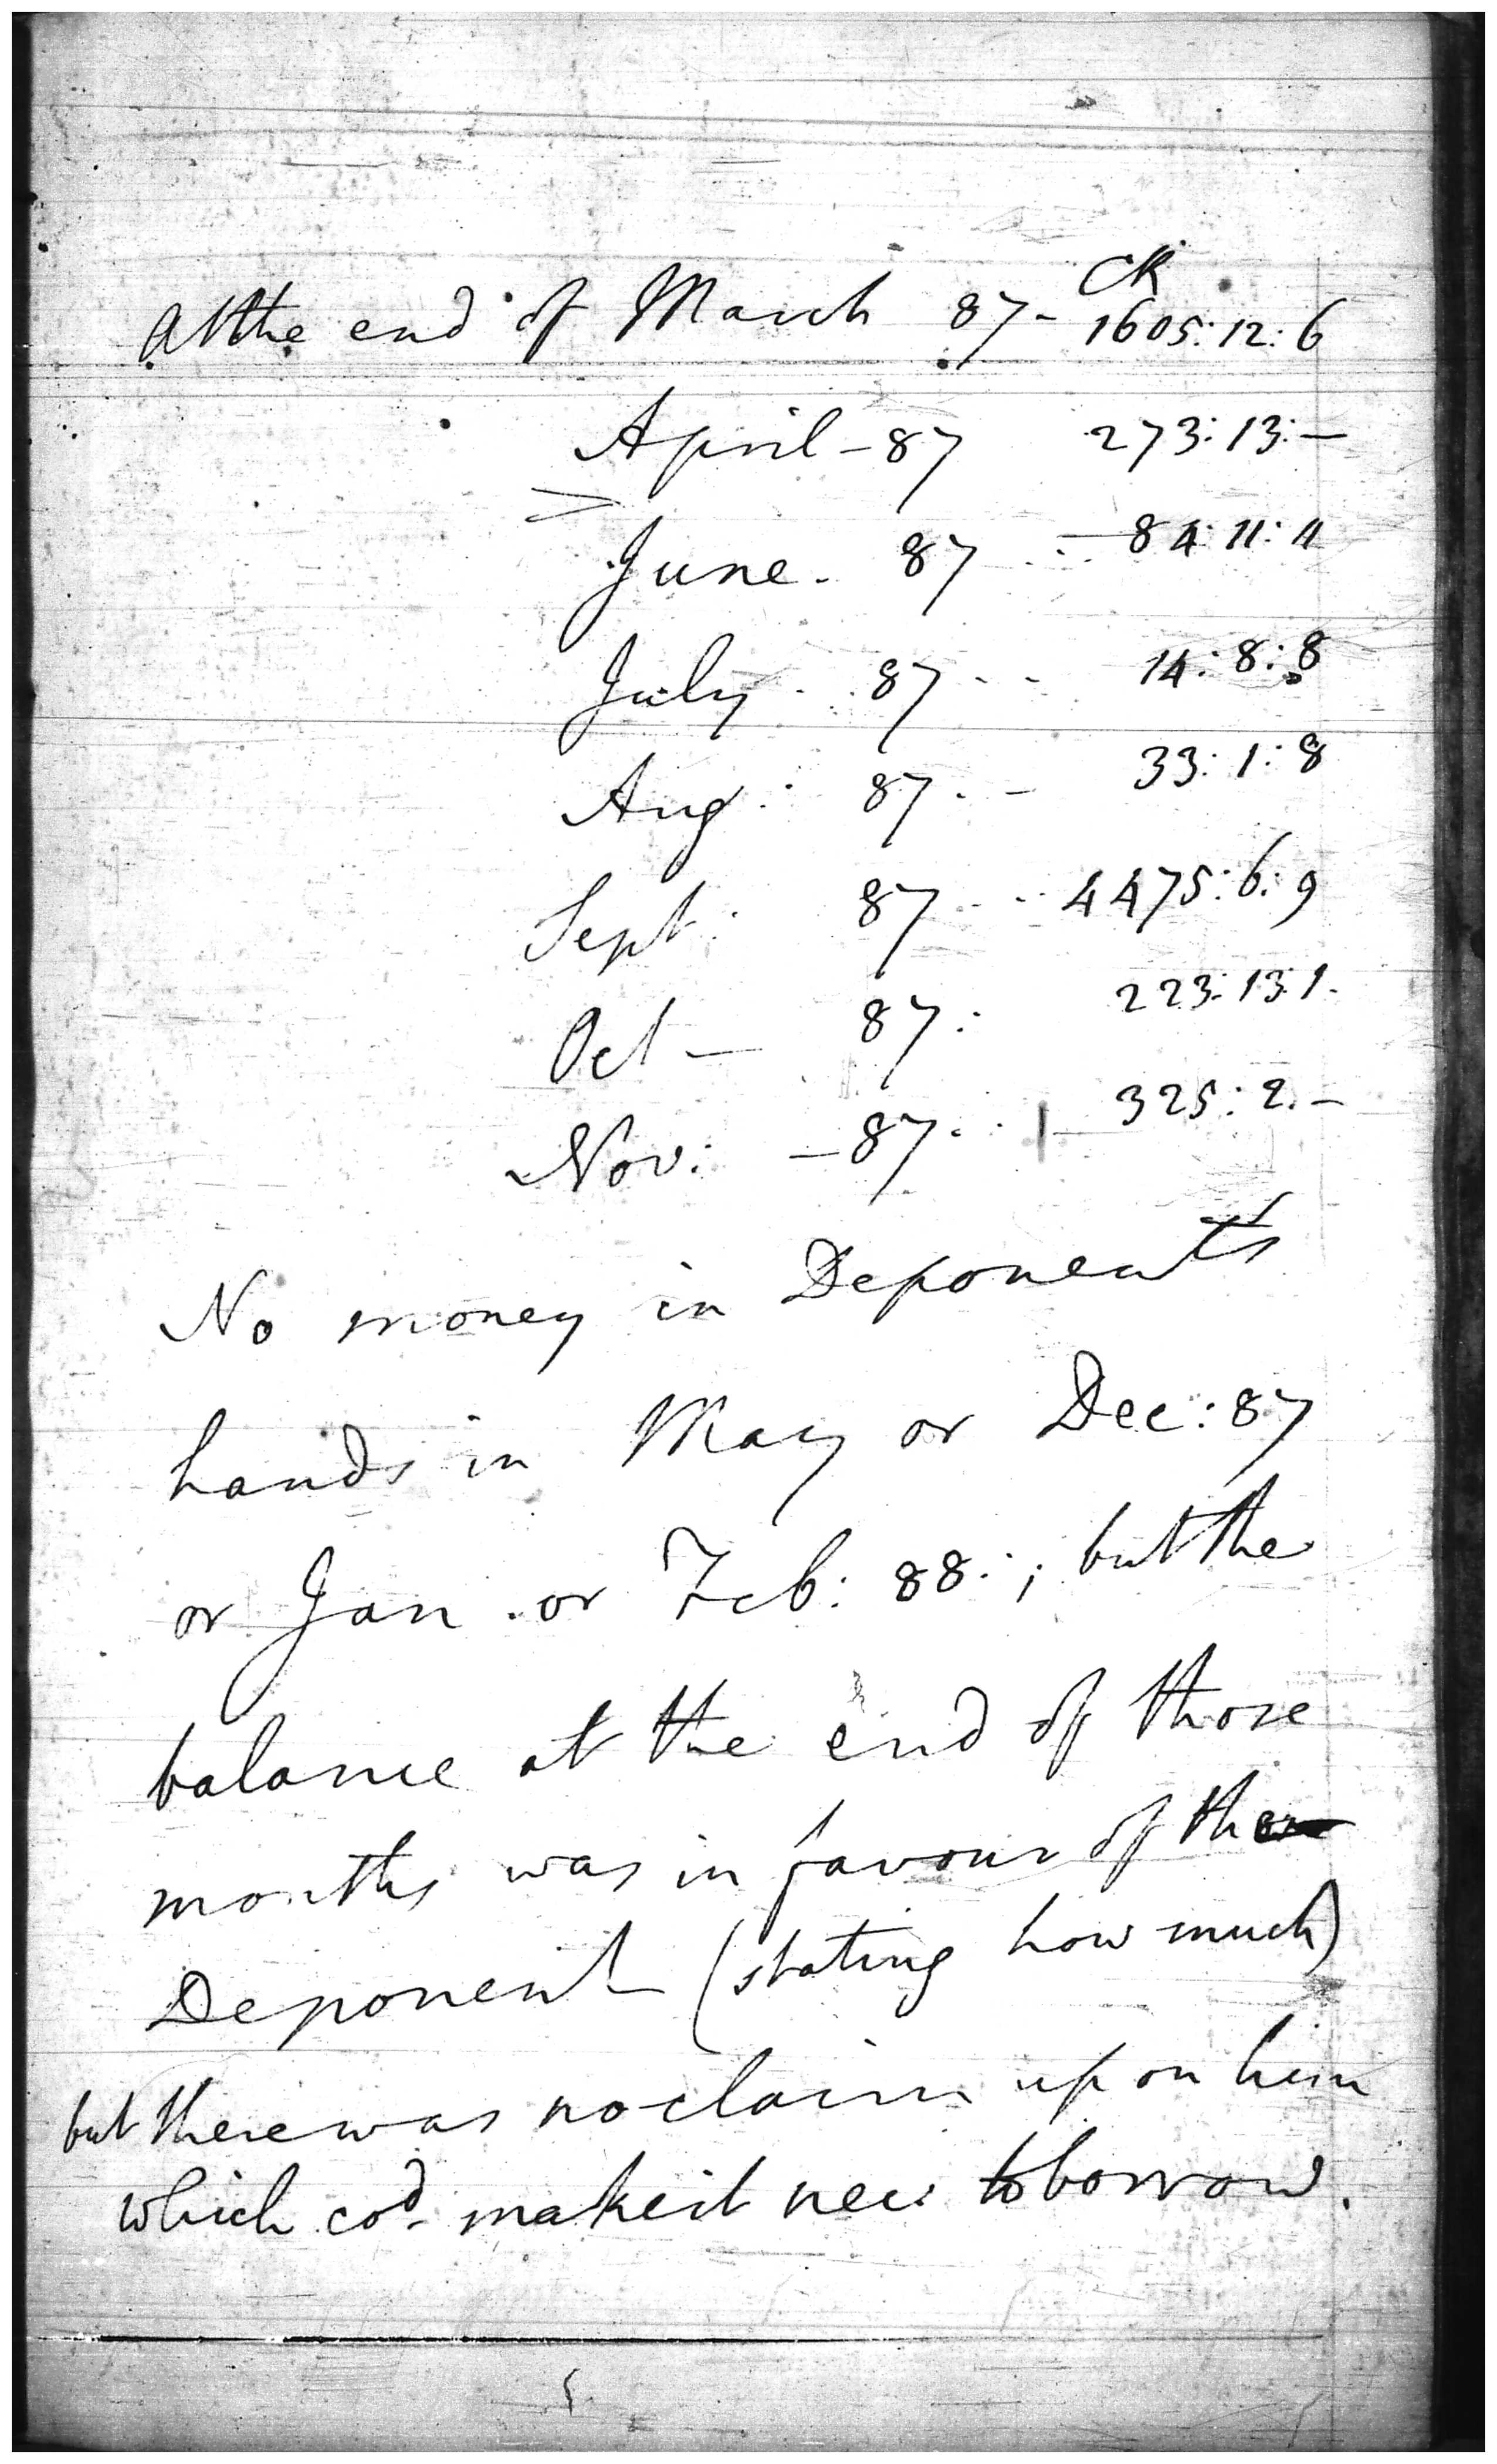 CR
At the end of March 87 - 1605: 12: 6
April - 87 273: 13: —
June. 87 — 84: 11: 11
July . . 87 - - 14: 8: 8
Aug: 87. - 33: 1: 8
Sept: 87 - - 4475: 6: 9
Oct — 87: 223: 13: 1.
Nov: — 87. . 325: 2. —
No money in Deponents
hands in May or Dec: 87
or Jan . or Feb: 88: ; but the
balance at the end of those
months was in favour of the
Deponent (stating how much)
but there was no claim upon him
which cod. make it nec: to borrow.